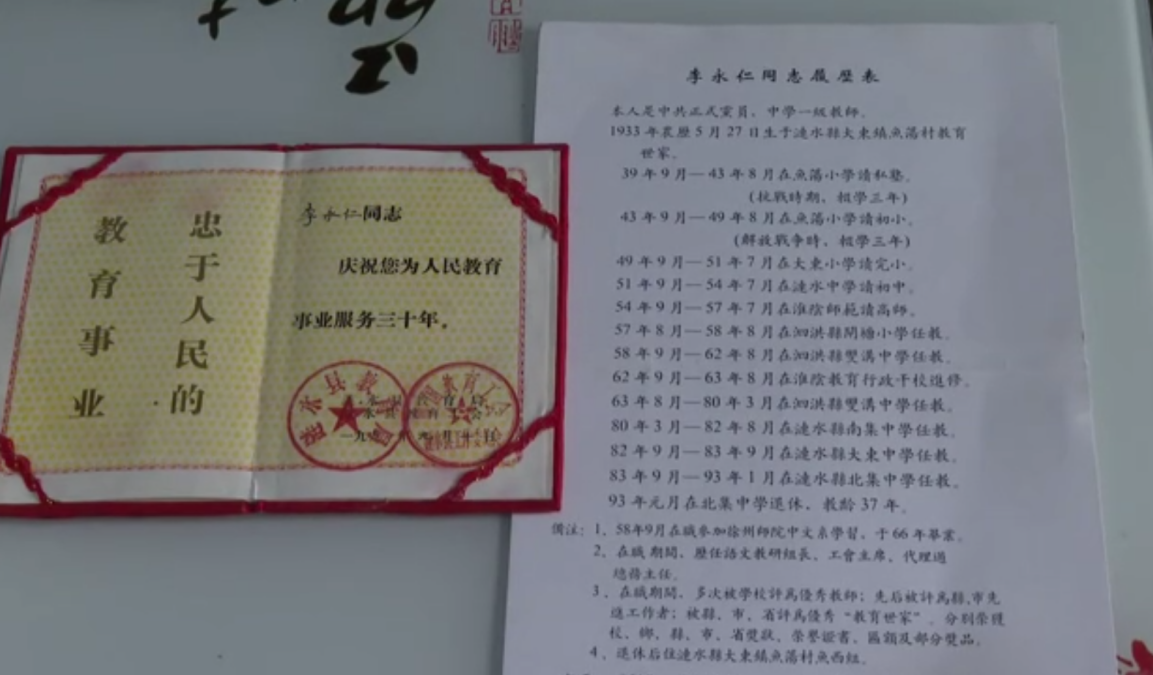 忠于人民的
教育事业
李永仁同志
庆祝您为人民教育
事业服务三十年。
李永仁同志履歷表
本人是中共正式黨員、中學一級教師。
1933年農歷5月27日生于漣水縣大東鎮魚蕩村教育
世家。
39年9月—43年8月在魚蕩小學讀私塾。
(抗戰時期、輟學三年)
43年9月—49年8月在魚蕩小學讀初小。
(解放戰争時、輟學三年)
49年9月—51年7月在大東小學讀完小。
51年9月—54年7月在漣水中學讀初中。
54年9月—57年7月在淮陰師範讀高師。
57年8月—58年8月在泗洪縣閘塘小學任教。
58年9月—62年8月在泗洪縣雙溝中學任教。
62年9月—63年8月在淮陰教育行政干校進修。
63年8月—80年3月在泗洪縣雙溝中學任教。
80年3月—82年8月在漣水縣南集中學任教。
82年9月—83年9月在漣水縣大東中學任教。
83年9月—93年1月在漣水縣北集中學任教。
93年元月在北集中學退休、教齡37年。
備注：1、58年9月在職參加徐州師院中文系學習，于66年畢業。
2、在職期間，歷任語文教研組長、工會主席、代理過
總務主任。
3、在職期間，多次被學校評爲優秀教師；先后被評爲縣,市先
進工作者；被縣、市、省評爲優秀“教育世家”。分别榮獲
校、鄉、縣、市、省獎狀、榮譽證書、匾額及部分獎品。
4、退休后住漣水縣大東鎮魚蕩村魚西組。